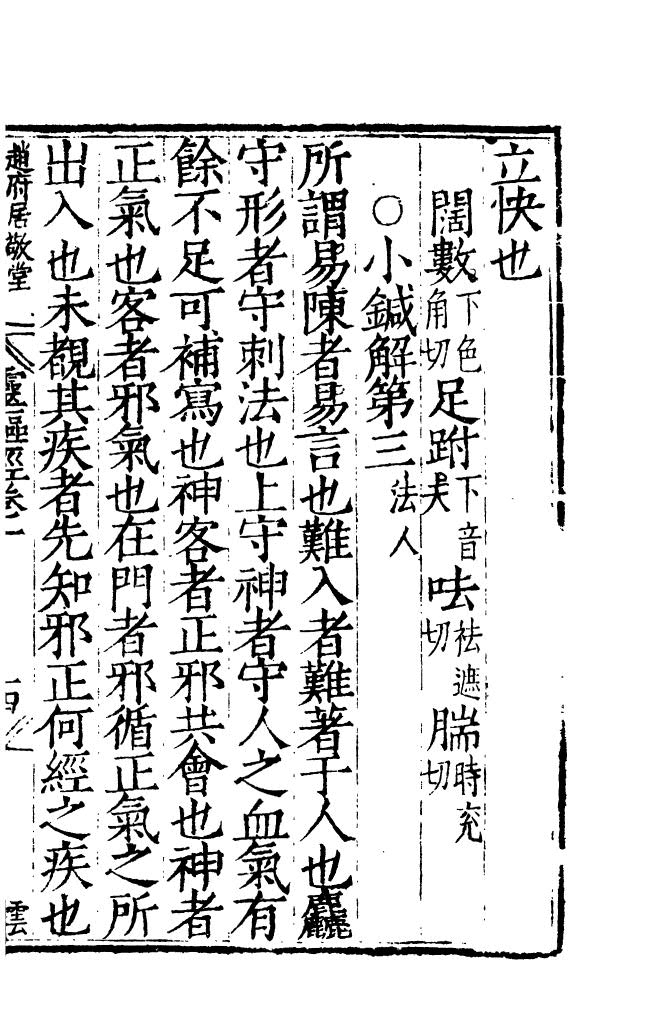 立快也
闊數下色角切足跗下音夫呿袪遮切腨時兖切
○小鍼解第三法人
所謂易陳者易言也難入者難著于人也麤
守形者守刺法也上守神者守人之血氣有
餘不足可補寫也神客者正邪共會也神者
正氣也客者邪氣也在門者邪循正氣之所
出入也未覩其疾者先知邪正何經之疾也
趙府居敬堂
靈樞經卷一
雲